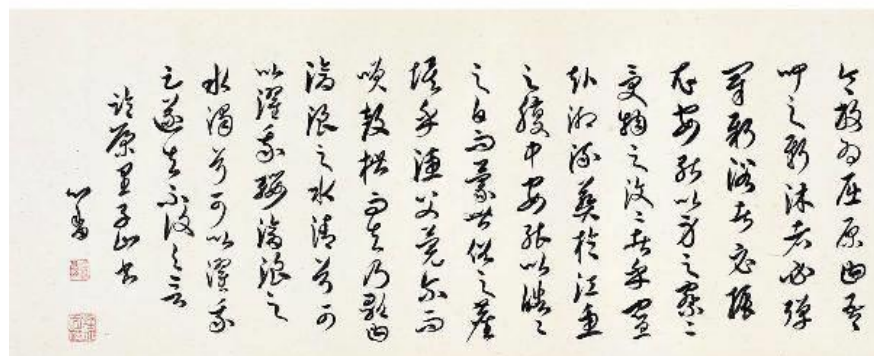 令放為屈原曰吾
聞之新沐者必彈
冠新浴者必振
衣安能以身之察々
受物之汶々者乎寧
赴湘流葬於江魚
之腹中安能以皓々
之白而蒙世俗之塵
埃乎漁父莞爾而
笑鼓枻而去乃歌曰
滄浪之水清兮可
以濯我纓滄浪之
水濁兮可以濯我
足遂去不復與言
子山書
心畬